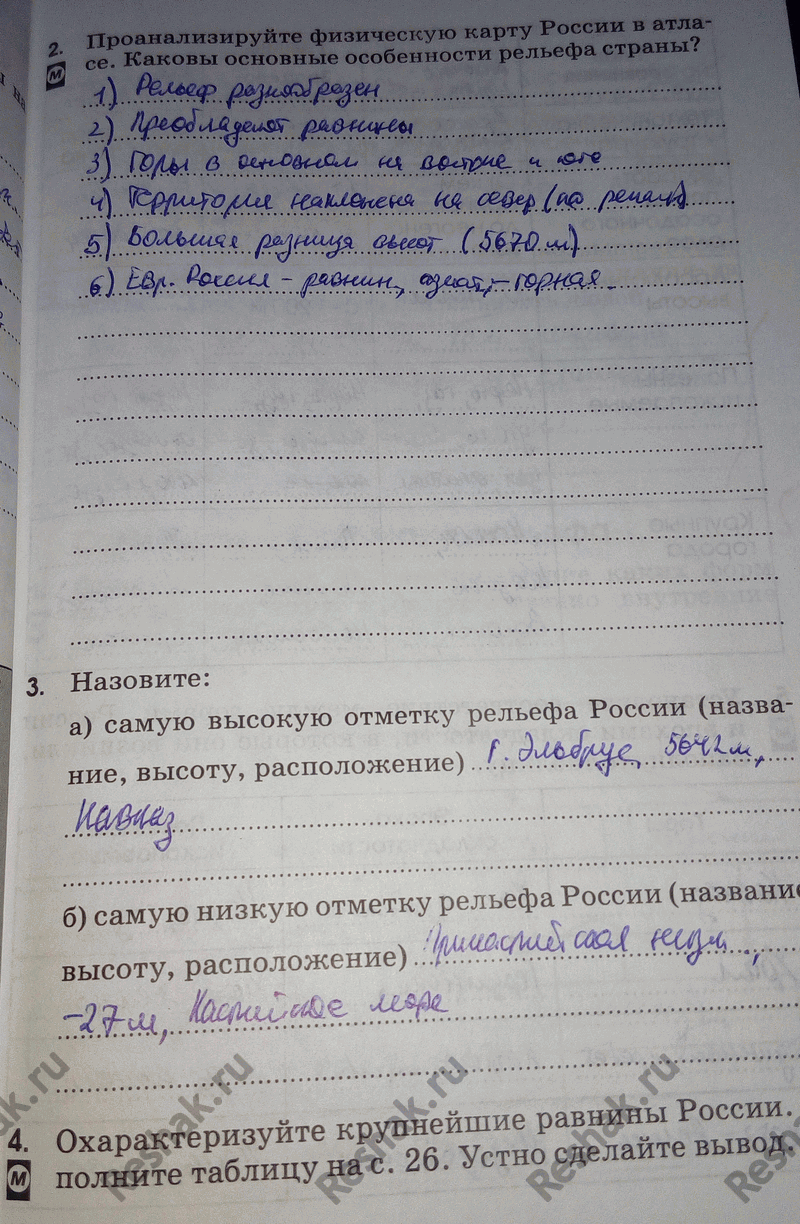 2. Проанализируйте физическую карту России в атла-
М се. Каковы основные особенности рельефа страны?
1) Рельеф разнообразен
2) Преобладают равнины
3) Горы в основном на востоке и юге
4) Территория наклонена на север (по рекам)
5) Большая разница высот (5670 м)
6) Евр. Россия - равнин., азиат. - горная
3. Назовите:
а) самую высокую отметку рельефа России (назва-
ние, высоту, расположение) г. Эльбрус, 5642 м,
Кавказ
б) самую низкую отметку рельефа России (название
высоту, расположение) Прикаспийская низм.,
-27 м, Каспийское море
4. Охарактеризуйте крупнейшие равнины России.
М полните таблицу на с. 26. Устно сделайте вывод.
Reshak.ru Reshak.ru Reshak.ru